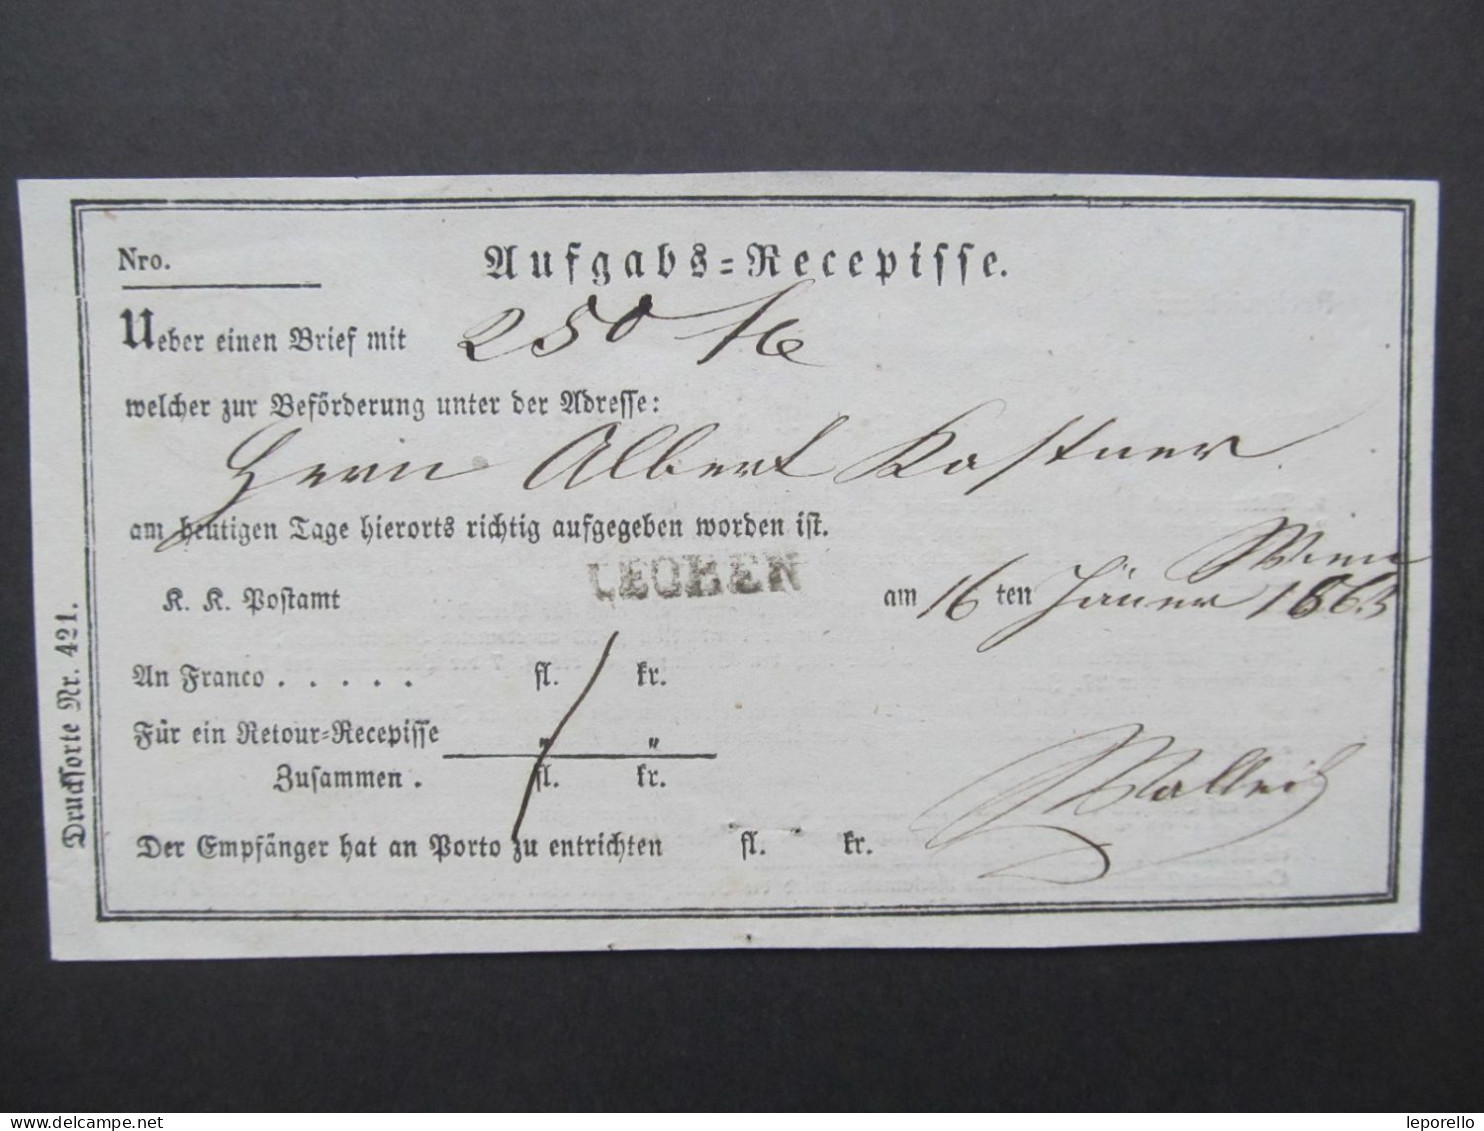 Nro.
Aufgabs=Recepisse.
Ueber einen Brief mit 250 fl
welcher zur Beförderung unter der Adresse:
Herrn Albert Kastner
Wien
am heutigen Tage hierorts richtig aufgegeben worden ist.
K. K. Postamt LEOBEN am 16 ten Jäner 1863
An Franco . . . . . fl. kr.
Für ein Retour=Recepisse " "
Zusammen . fl. kr.
Der Empfänger hat an Porto zu entrichten fl. kr.
Drucksorte Nr. 421.
delcampe.net
leporello